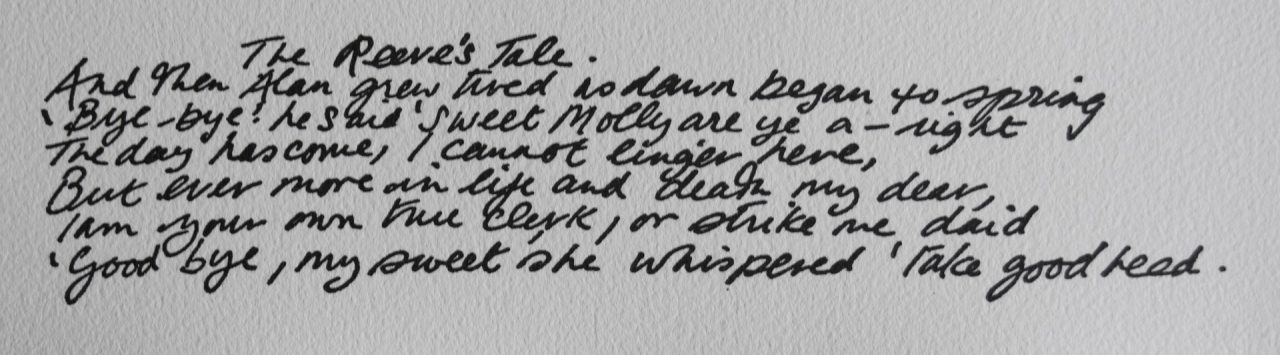 The Reeve's Tale.
And then Alan grew tired as dawn began to spring
'Bye-bye' he said 'Sweet Molly are ye a-right
The day has come, I cannot linger here,
But ever more in life and death my dear,
I am your own true clerk, or strike me daid
'Good bye, my sweet' she whispered 'Take good heed.